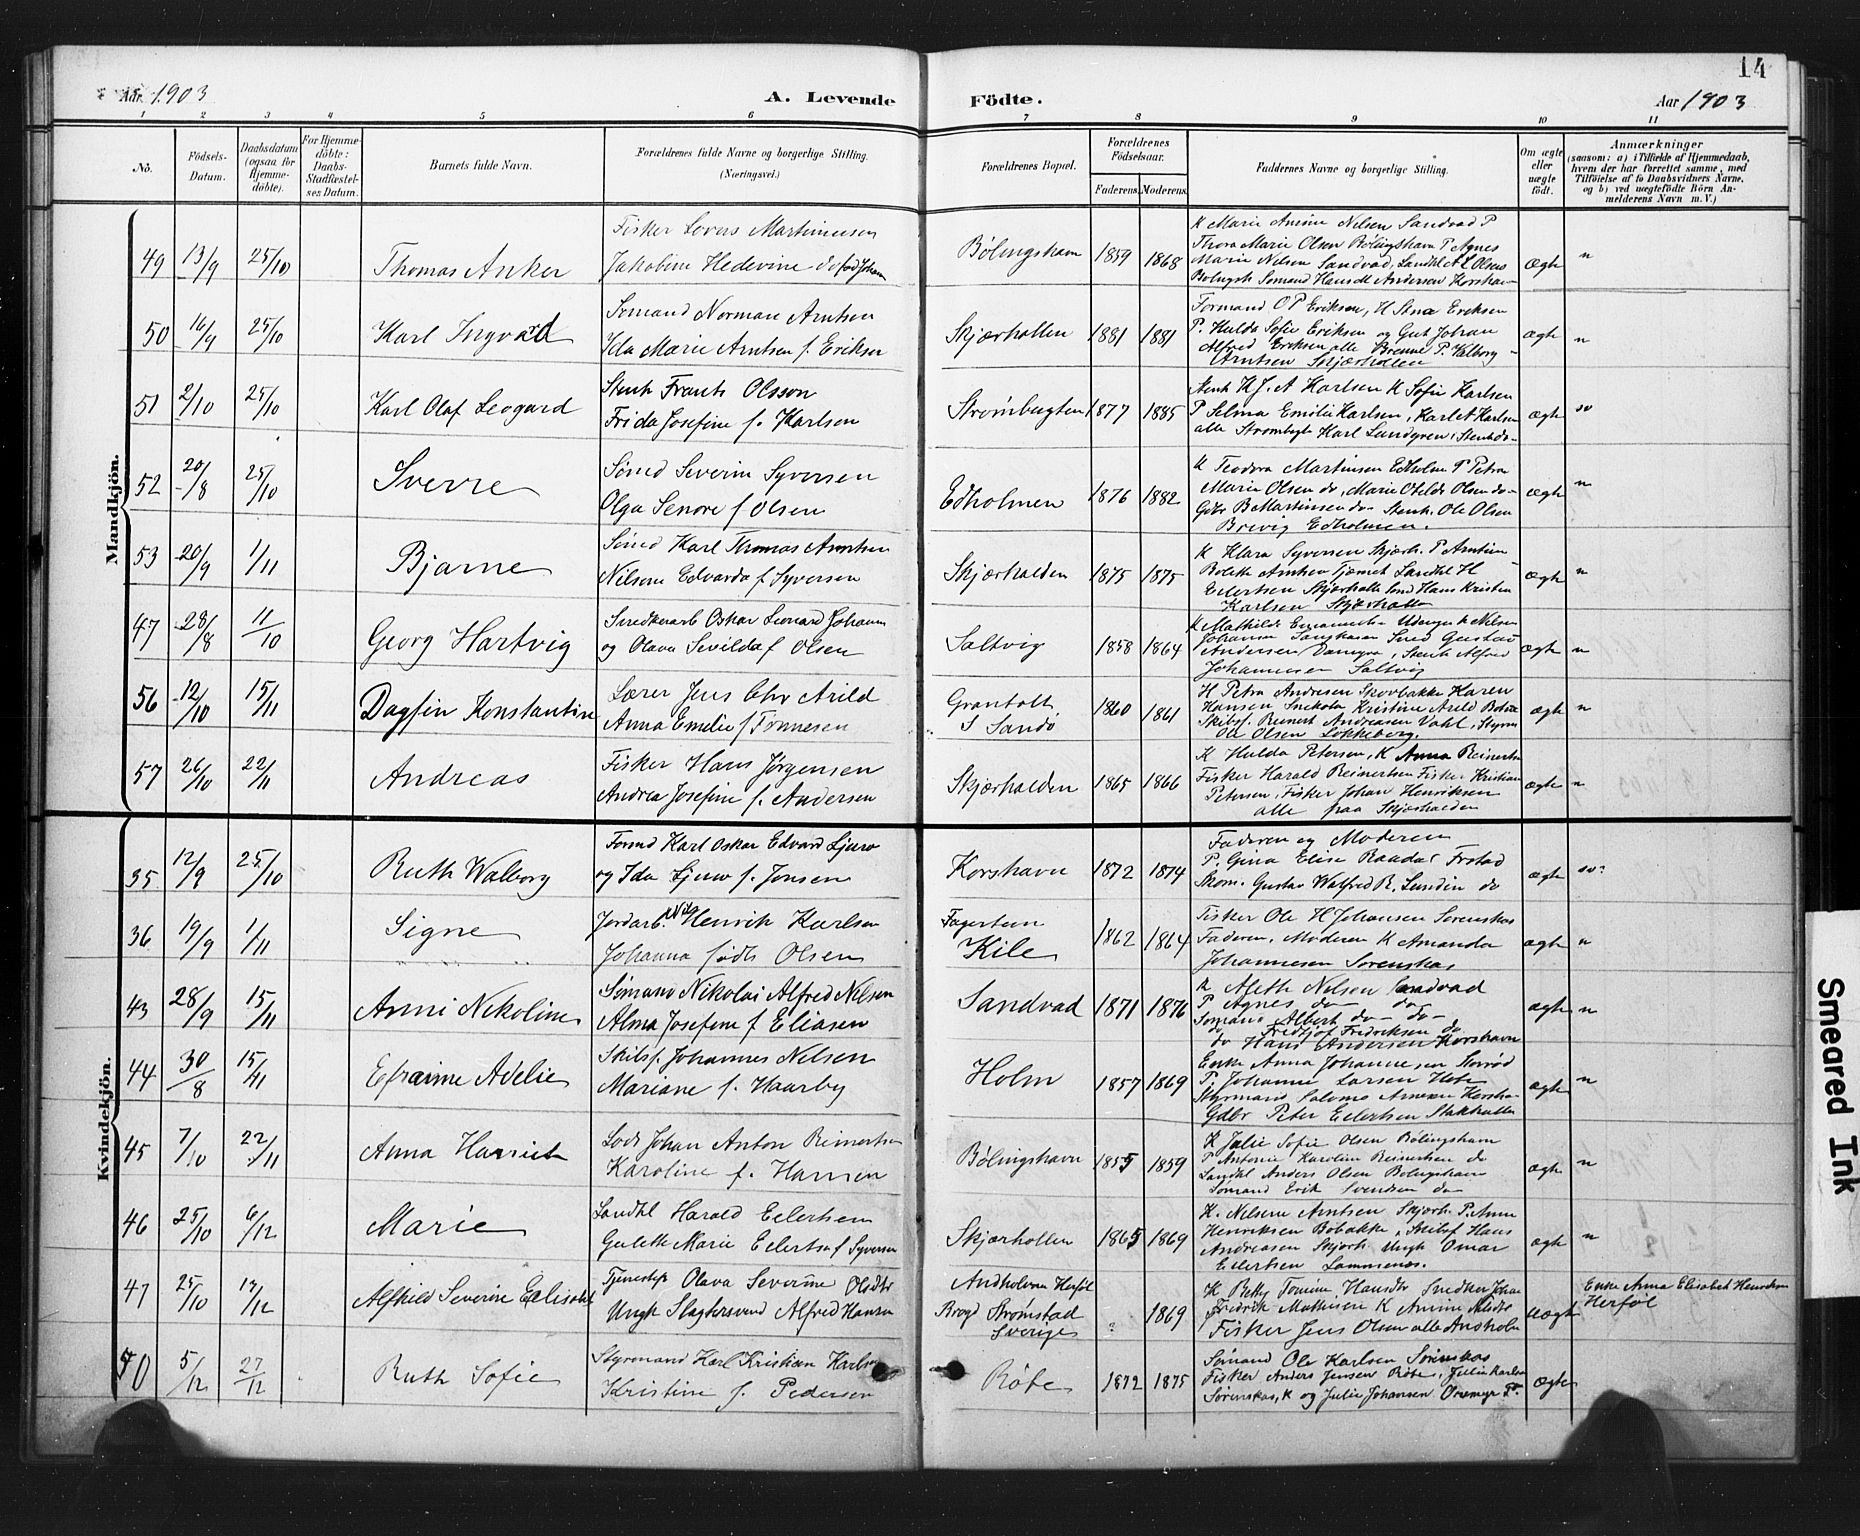 14
Aar 1903
A. Levende Födte.
Aar 1903
1 2 3 4 5 6 7 8 9 10 11
No.
Födsels-Datum.
Daabsdatum (ogsaa for Hjemme-döbte).
For Hjemme-döbte: Daabs-Stadfæstel-ses Datum.
Barnets fulde Navn.
Forældrenes fulde Navne og borgerlige Stilling. (Næringsvei.)
Forældrenes Bopæl.
Forældrenes Födselsaar.
Faderens. Moderens.
Faddernes Navne og borgerlige Stilling.
Om ægte eller uægte født.
Anmærkninger
(saasom: a) i Tilfælde af Hjemmedaab, hvem der har forrettet samme, med Tilföielse af to Daabsvidners Navne, og b) ved uægtefödte Börn An-melderens Navn m. V.)
Mandkjön.
49 13/9 25/10 Thomas Anker
Fisker Martinusen
Jakobine Hedevine
Bølingshavn 1859 1868
K Marie Amine Nilsen Sandvad P
Thora Marie Olsen Bølingshavn P Agnes
Marie Nilsen Sandvad, Landhl A L Olsens
Bølingsh Sømand Hans M Andersen Korshav
ægte n
50 16/9 25/10 Karl Ingvard
Sømand Norman Arntsen
Ida Marie Arntsen f. Eriksen
Skjærhallen 1881 1881
Formand O P Eriksen, H Stina Eriksen
P. Hulda Sofie Eriksen og Gut Johan
Alfred Eriksen alle Brenne P. Valborg
Arntsen Skjærhallen
ægte n
51 2/10 25/10 Karl Olaf Leogard
Stenh Frants Olsson
Frida Josefine f. Karlsen
Strømbugten 1877 1885
Stenh K J. A Karlsen K Sofie Karlsen
P Selma Emilie Karlsen, Karl A Karlsen
alle Strømbugt Karl Lundgren, Stenh do
ægte sv
52 20/8 25/10 Sverre
Sømd Severin Syversen
Olga Lenore f Olsen
Edholmen 1876 1882
K Teodora Martinsen Edholm P Petra
Marie Olsen do, Marie Otilde Olsen do
Gdbr B Martinsen do Stenh. Ole Olsen
Brevig Edholmen.
ægte n
53 20/9 1/11 Bjarne
Sømd Karl Thomas Arntsen
Nilsine Edvarda f. Syversen
Skjærhalden 1875 1875
K Klara Syversen Skjærh. P Arntine
Bolette Arntsen Tjømet Landhl H
Eilertsen Skjærhalle Sømd Hans Kristian
Karlsen Skjærhalle
ægte n
47 28/8 11/10 Georg Hartvig
Snedkerarb Oskar Leonard Johannes
og Olava Sevilda f Olsen
Saltvig 1858 1864
K Mathilde K Nilsen
Johansen Sned Gustav
Andersen, Stenh Alfred
Johannesen Saltvig
ægte n
56 12/10 15/11 Dagfin Konstantin
Lærer Jens Chr Arild
Anna Emelie f Tønnesen
Grønholt S Sandø 1860 1861
H Petra Andresen Skovbakke Karen
Hansen Kristine Arild
Skibsf. Reinert Andreasen Vahl, Styrm
Ole Olsen Løkkeberg.
ægte n
57 26/10 22/11 Andreas
Fisker Hans Jørgensen
Andrea Josefine f. Andersen
Skjærhalden 1865 1866
K Hulda Petersen, K Anna Reinertsen
Fisker Harald Reinertsen Fisker Kristian
Petersen, Fisker Johan Henriksen
alle paa Skjærhalden
ægte n
Kvindekjön.
35 12/9 25/10 Ruth Walborg
Formd Karl Oskar Edvard Ljuro
og Ida Ljuro f. Jonsen
Korshavn 1872 1874
Faderen og Moderen
P. Gina Elise
Skom. Gustav Walfred R. Lundin do
ægte sv
36 19/9 1/11 Signe
Jordarb. Nils Henrik Karlsen
Johanna fødte Olsen
Kile 1862 1864
Fisker Ole H Johansen Sørenskas
Faderen, Moderen K Amanda
Johannesen Sørenskas
ægte n
43 28/9 15/11 Anni Nikoline
Sømand Nikolai Alfred Nilsen
Alma Josefine f Eliasen
Sandvad 1871 1876
K Aleth Nelsen Sandvad
P Agnes do do
Sømand Albert do do
do Fredtjof Fredriksen do
do Hans Andersen Korshavn
ægte n
44 30/8 15/11 Efraime Adelie
Skibsf. Johannes Nelsen
Mariane f. Haarby
Holm 1857 1869
Enke Anna Johannesen Storrød
P. Johanne Larsen
Styrmand Salomo Arnesen
Gdbr Peter Eilertsen
ægte n
45 7/10 22/11 Anna Harriet
Lods Johan Anton Reinertsen
Karoline f. Hansen
Bølingshavn 1855 1859
K Julie Sofie Olsen Bølingshavn
P Antonie Karoline Reinertsen do
Landhl Anders Olsen Bølingshavn
Sømand Erik Svendsen do
ægte n
46 25/10 6/12 Marie
Landhl Harald Eilertsen
Gulette Marie Eilertsen f Syversen
Skjærhallen 1865 1869
K. Nilsine Arntsen Skjærh. P. Anna
Henriksen Bobakke, Skibsf Hans
Andreasen Skjærh Ungk Omar
Eilertsen
ægte n
47 25/10 13/12 Alfhild Severine Elisabet
Tjenestep Olava Severine Olsdtr
Ungk Slagtersvend Alfred Hansen
Andholmen Herføl
Strømstad Sverige
? 1869
K Betty Tomine Hansdtr Snedker Johan
Fredrik Mathisen K Amine
Fisker Jens Olsen alle Andholm
uægte
Enke Anna Elisabeth Henriksen
Herføl
70 5/12 27/12 Ruth Sofie
Styrmand Karl Kristian Karlsen
Kristine f. Pedersen
Røbe 1872 1875
Sømand Ole Karlsen Sørenskas
Fisker Anders Jensen Røbe, Julie Karlsen
Sørenskas, K og Julie Johansen
ægte
Smeared Ink